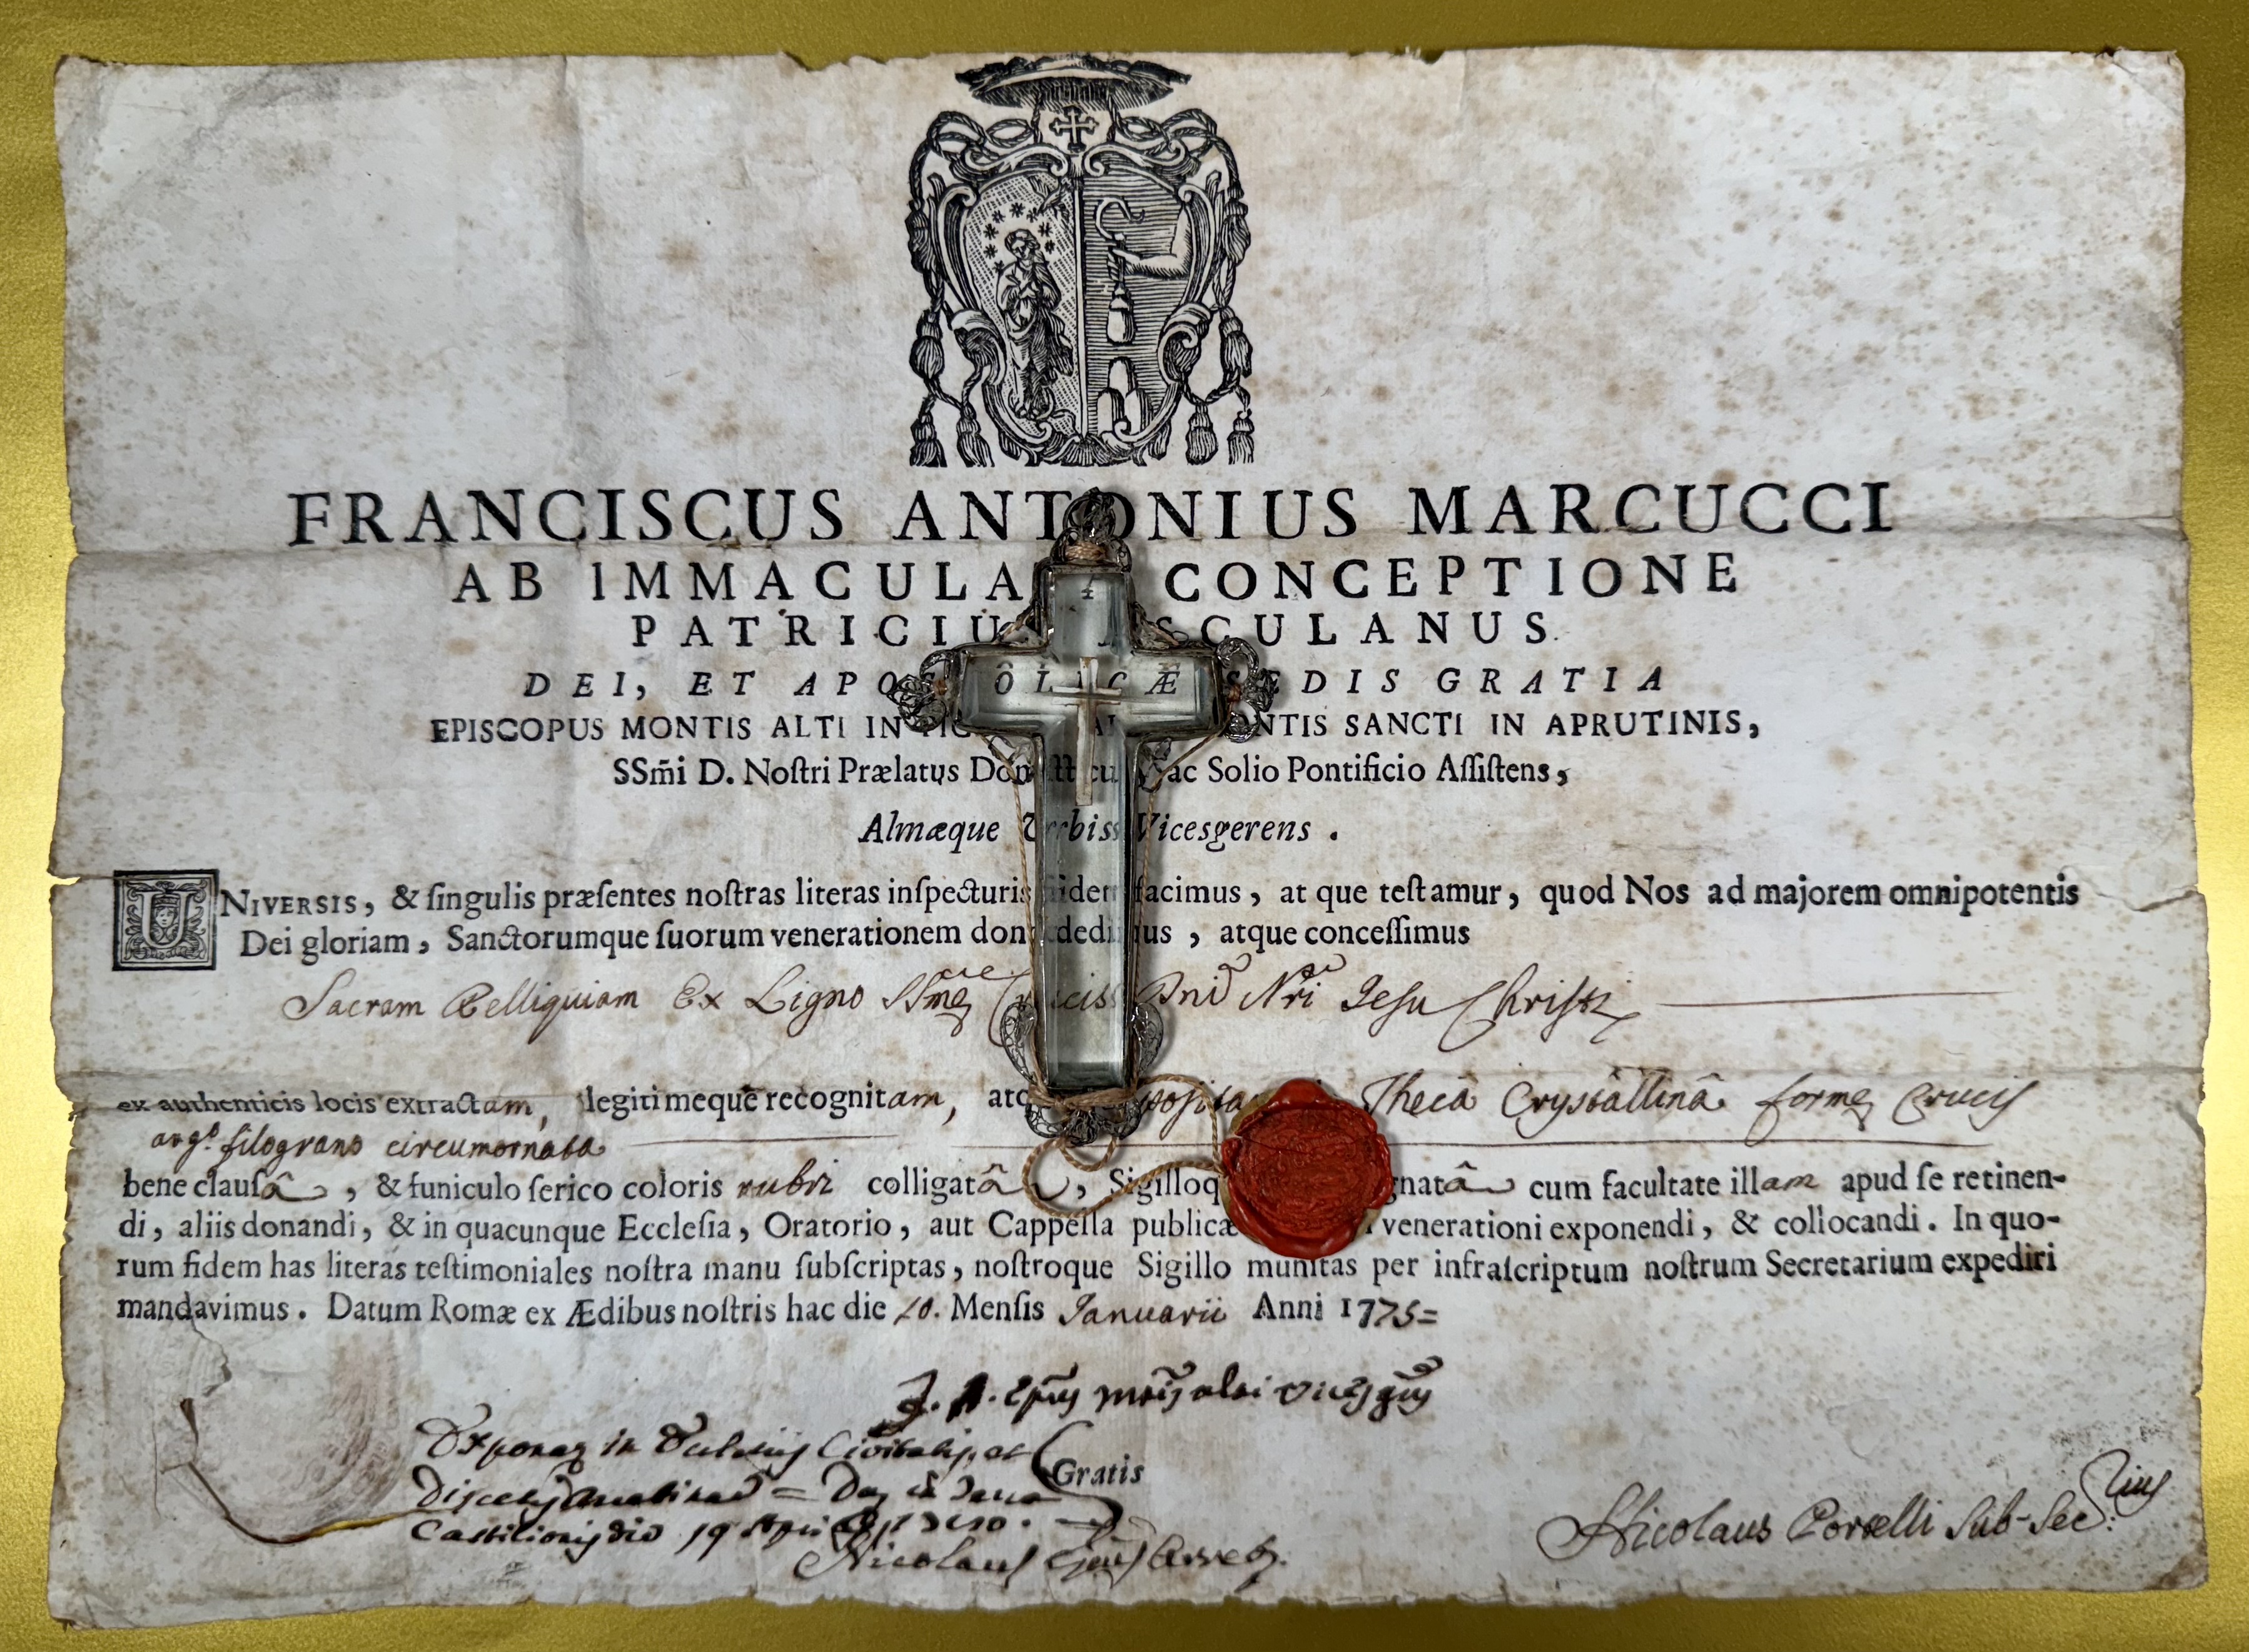 FRANCISCUS ANTONIUS MARCUCCI
AB IMMACULA CONCEPTIONE
PATRICIU SCULANUS.
DEI, ET APOSTOLICÆ SEDIS GRATIA
EPISCOPUS MONTIS ALTI IN NTIS SANCTI IN APRUTINIS,
SSm̃i D. Noſtri Prælatus Domeſticu ac Solio Pontificio Aſſiſtens,
Almæque Urbis Vicesgerens .
UNIVERSIS, & ſingulis præſentes noſtras literas inſpecturis fidem facimus, at que teſtamur, quod Nos ad majorem omnipotentis
Dei gloriam, Sanctorumque ſuorum venerationem dono dedimus , atque conceſſimus
Sacram Relliquiam Ex Ligno SSmę Crucis Dni Nri Jesu Christi
ex authenticis locis extractam, legitimeque recognitam, atq poſita Thecâ Crystallinâ formę Crucis
argo filograno circumornata
bene clauſâ , & funiculo ſerico coloris rubri colligatâ , Sigilloq gnatâ cum facultate illam apud ſe retinen-
di, aliis donandi, & in quacunque Eccleſia, Oratorio, aut Cappella publicæ venerationi exponendi, & collocandi. In quo-
rum fidem has literas teſtimoniales noſtra manu ſubſcriptas, noſtroque Sigillo munitas per infraſcriptum noſtrum Secretarium expediri
mandavimus. Datum Romæ ex Ædibus noſtris hac die 20. Mensis Januarii Anni 1775=
F. A. Epus
Gratis
Nicolaus
Nicolaus Porcelli Sub-Sec:rius